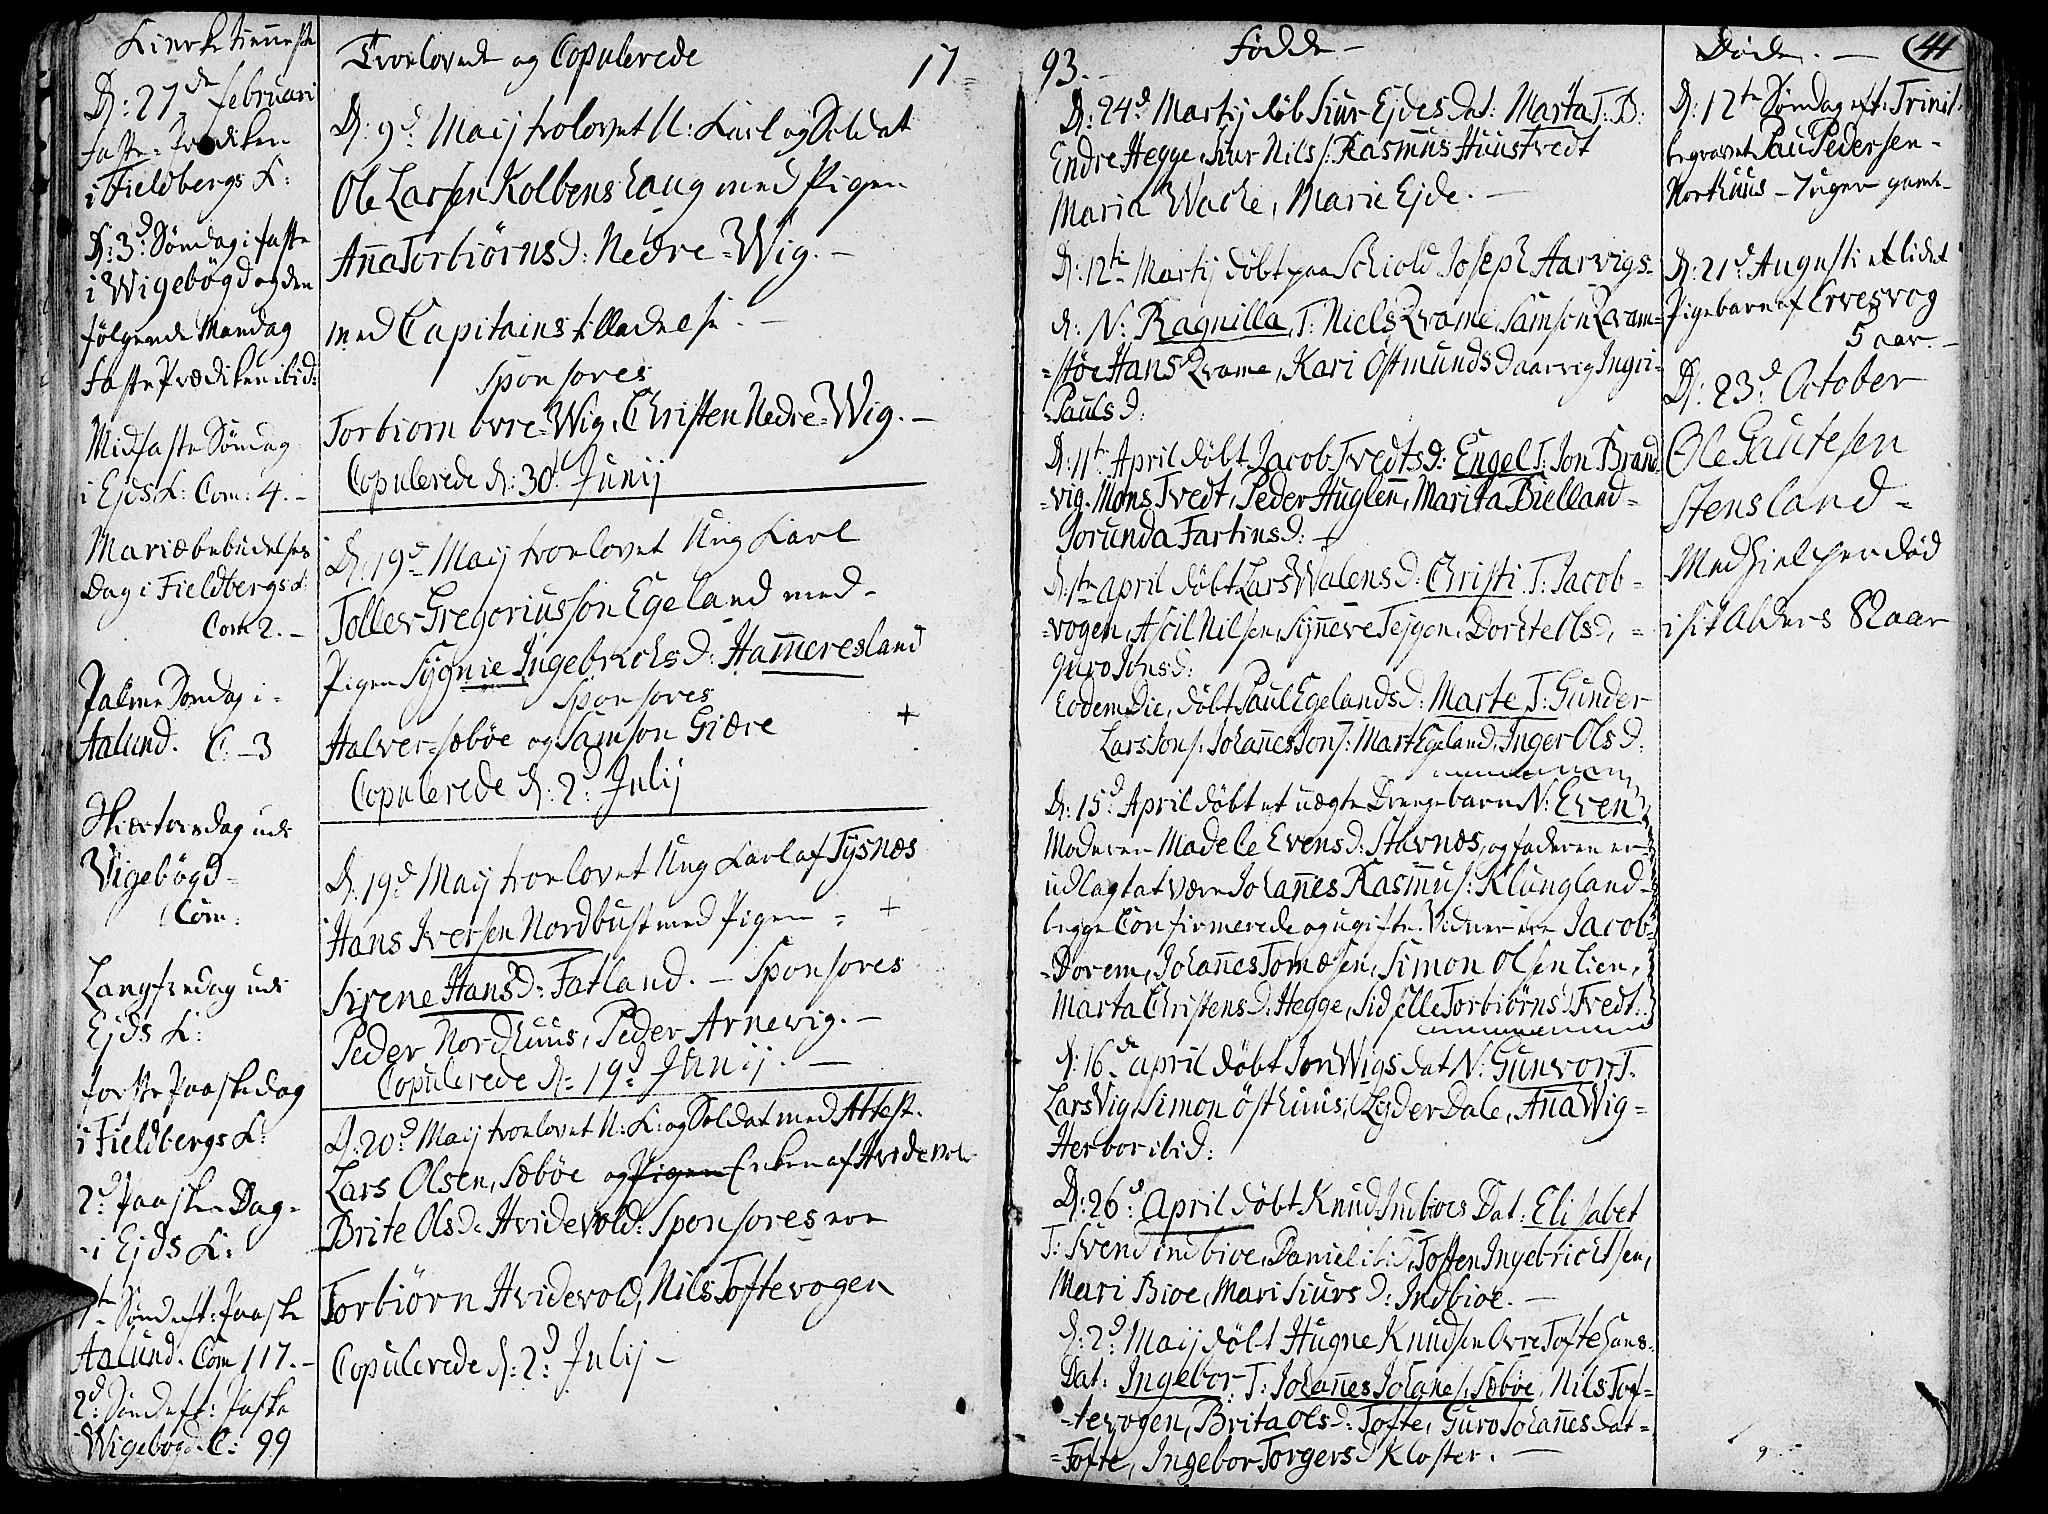 Kirke tienneste
D: 27de februari
faste-Prædiken
i Fieldbergs K:
D: 3d: Søndag i faste
i Wigebögd og den
følgende Mandag
faste Prædiken ibid:
Midfaste Søndag
i Ejds K: Com: 4. -
Mariæ bebudelses
Dag i Fieldbergs K:
Com 2. -
Palme Søndag i -
Aalund. C. - 3
Skiertorsdag udi
Vigebögd -
Com:
Langfredag udi
Ejds K:
förste Paaskedag
i Fieldbergs K:
2d: Paaske Dag -
- i Ejds K:
1te Sönd: eft: Paaske
Aalund. Com 117. -
2d: Sönd eft: Paske
Wigebogd. C: 99
Troelovede og Copulerede 17 =
D: 9d Maij trolovet U: Karl og Soldat
Ole Larsen Kolbenshaug med Pigen
Anna Torbiörns D: Nedre = Wig. -
med Capitains tilladelse. -
Sponsores
Torbiorn övre = Wig, Christen Nedre = Wig. -
Copulerede d: 30d Junij
D: 19d Maij troelovet Ung Karl
Tollev Gregoriusson Egeland med -
Pigen Sygnie Ingebrichs D: Hammeresland
Sponsores
Halver = sæböe og Samson Giære +
Copulerede d: 2d: Julij
D. 19d Maij troelovet Ung Karl af Tysnæs
Hans Iversen Nordbust med Pigen = +
Sirene Hans D: Fatland. - Sponsores
Peder Nordhuus, Peder Arnevig. -
Copulerede d: 19d Junij. -
D: 20d Maij troelovet U: K: og Soldat med Attest.
Lars Olsen, Sæböe og Pigen Enken af Hvidevold
Brite Ols D: Hvidevold: Sponsores ere
Torbiörn Hvidevold, Nils Toftevogen
Copulerede d: 2d: Julij -
93. - Födde -
D: 24d Martij döb Siur Ejdes Dat: Marta T: B:
Endre Hegge, Siur Nils s: Rasmus Huustvedt
Maria Wacke, Marie Ejde. -
D: 12te Martij döbt paa Schiold Joseph Aarvigs -
d: N: Ragnilla, T: Niels Qvame, Samson Qvam =
= stöe Hans Qvame, Kari Östmunds D aarvig Ingri -
= Pauls D:
D: 11te April döbt Jacob Tvedts D: Engel T: Jon Brand
= vig. Mons Tvedt, Peder Huglen, Marita Bielland -
Gorunda Fartins D: +
D: 1te april döbt Lars Walens D: Christi T: Jacob -
= vogen, Ascil Nilsen, Synneve Tejgen, Dorte Ols D, =
guro Jons D:
Eodem Die, döbt Paul Egelands D: Marte T: Gunder
Lars Jons: Johannes Jons: Mart Egeland, Inger Ols D:
D: 15d April döbt et uægte Drengebarn N: Even
Moderen Madele Evens D: Stavnæs, og faderen er
udlagt at være Johannes Rasmus: Klungland -
begge Confirmerede og ugifte. Vidner ere Jacob
= Dorem, Johannes Tomæsen, Simon Olsen Lien,
Marta Christens D: Hegge, Sidselle Torbiörns D Tvedt:
D: 16d april döbt Jon Wigs dat N: Gunvor T.
Lars Vig, Simon Östhuus, Lyder Dale, Anna Wig =
Herbor ibid:
D: 26d: april döbt Knud Indbioes Dat: Elisabet
T: Svend indbioe, Daniel ibid, Tosten Ingebrichtsen,
Mari Bioe, Mari Siurs D: Indbioe. -
D: 2d Maij döbt Hugne Knudsen Ovre Toftehuus -
Dat: Ingebor T: Johannes Johanes: Sæböe, Nils Tof =
= tevogen, Brita Ols D: Tofte, Guro Johannes Dat -
= Tofte, Ingebor Torgers D Kloster. -
Döde. - 41
D: 12te Søndag eft: Trinit.
begravet Pau Pedersen -
Northuus - 7 uger gaml -
D: 21d Augusti et lidet
Pigebarn af Ervesvog
5 aar. -
D: 23d October
Ole Gautesen
Stensland -
Med hielpen död
i sit Alders 82 aar